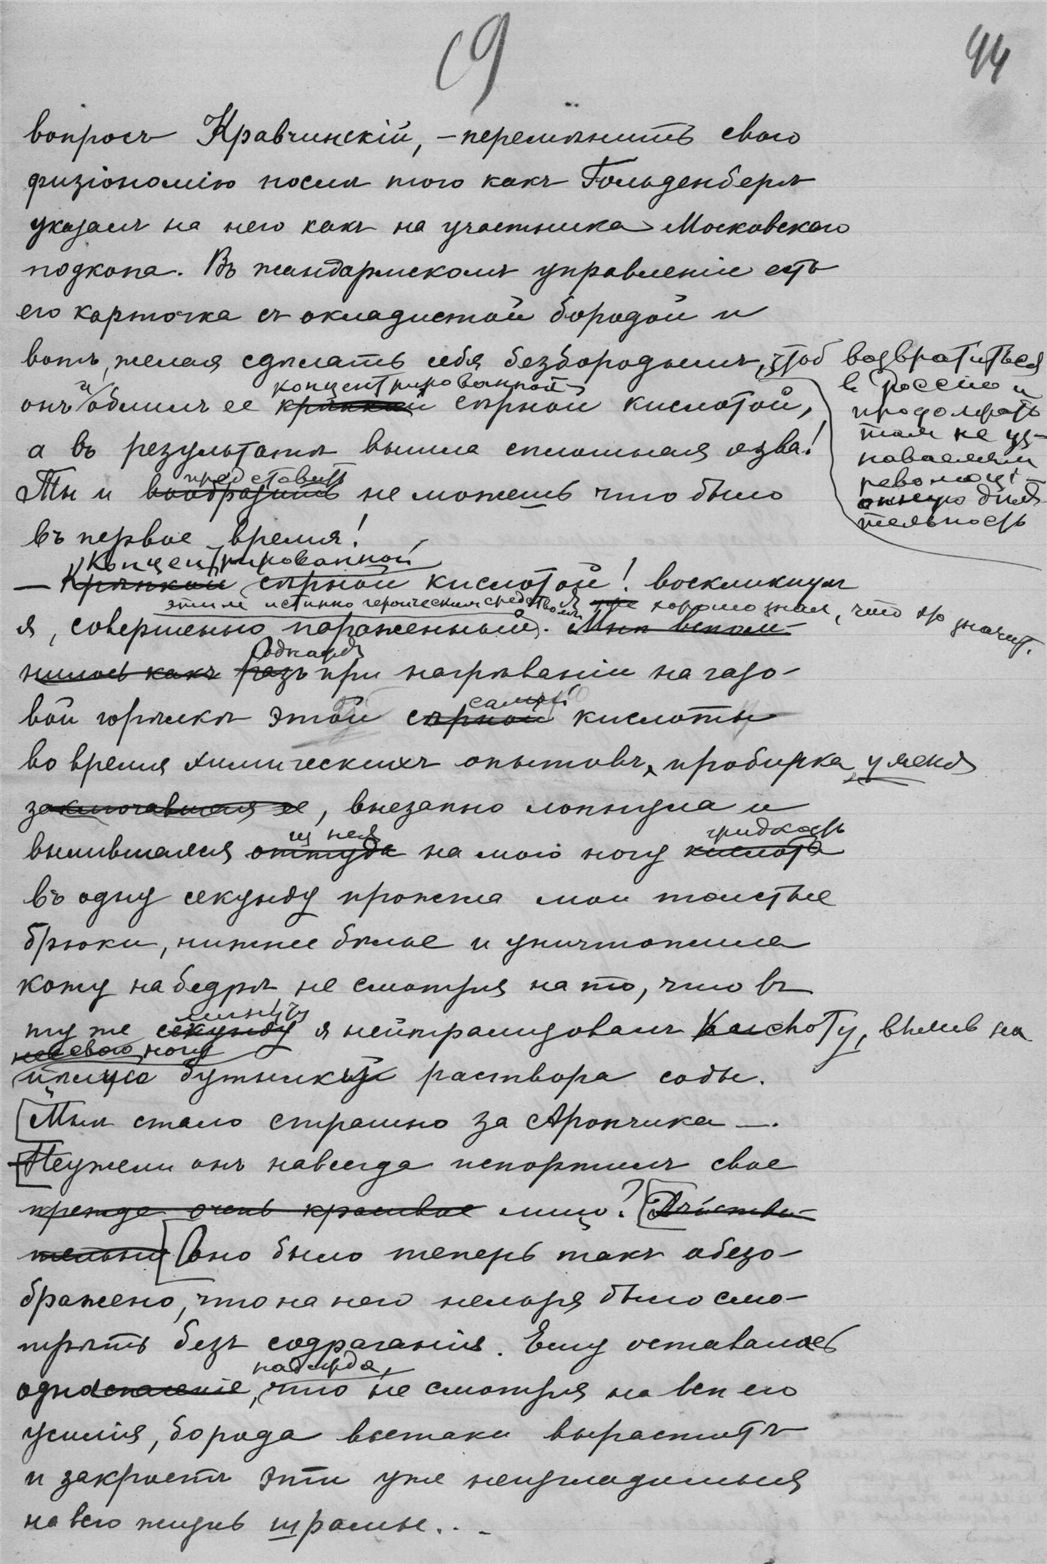 69
44
вопросъ Кравчинскій, – перемѣнить свою
физіономію послѣ того какъ Гольденбергъ
указалъ на него какъ на участника Московскаго
подкопа. Въ жандармскомъ управленіи есть
его карточка съ окладистой бородой и
вотъ, желая сдѣлать себя безбородымъ, чтоб возвратиться
в Россію и
продолжать
там не уз-
наваемым
революці-
онную дѣя
тельность
концентрированной
онъ и облилъ ее крѣпкой сѣрной кислотой,
а въ результатѣ вышла сплошная язва!
представить
Ты и вообразить не можешь что было
въ первое время!
Концентрированной
– Крѣпкой сѣрной кислотой! воскликнулъ
этим истинно героическим средством. хорошо знал, что это значит.
я, совершенно пораженный. Мнѣ вспом-
Однажды
нилось какъ разъ при нагрѣваніи на газо-
самой
вой горѣлкѣ этой сѣрной кислоты
во время химическихъ опытовъ, пробирка у меня
заключавшая ее, внезапно лопнула и
из нея жидкость
вылившаяся оттуда на мою ногу кислота
въ одну секунду прожгла мои толстые
брюки, нижнее бѣлье и уничтожила
кожу на бедрѣ не смотря на то, что въ
минуту
ту же секунду я нейтрализовалъ кислоту, вылив на
на свою ногу
цѣлую бутылку раствора соды.
Мнѣ стало страшно за Арончика –.
– Неужели онъ навсегда испортилъ свое
прежде очень красивое лицо? Дѣйстви-
тельно Оно было теперь такъ обезо-
бражено, что на него нельзя было смо-
трѣть безъ содраганія. Ему оставалась
надежда,
одно спасеніе, что не смотря на всѣ его
усилія, борода всетаки выраститъ
и закроетъ эти уже неизгладимыя
на всю жизнь шрамы...